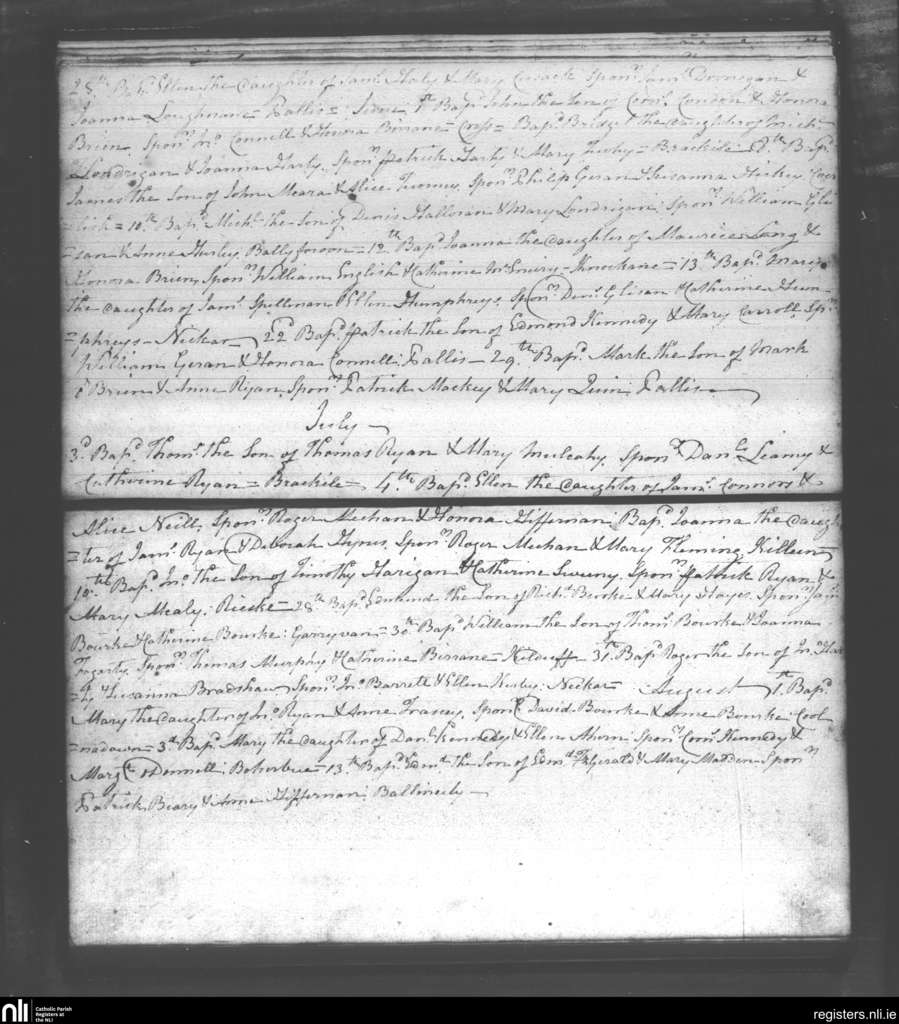 28th Bap. Ellen the Daughter of Jams. Haly & Mary Cusack Sponrs. Jams. Donegan &
Joanna Loughnane = Pallis = June 1st Bapd. John the Son of Corns. Condon & Honora
Brien Sponrs. Jno. Connell & Honora Birrane = Cross = Bapd. Bridget the Daughter of Michl.
Londrigan & Joanna Harty Sponrs. Patrick Harty & Mary Tuohy = Brackile 8th Bapd.
James the Son of John Meara & Alice Twomey Sponrs. Philip Geran & Susanna Hickey
= 10th Bapd. Michl. the Son of Denis Halloran & Mary Londrigan: Sponrs. William Gli
=san & Anne Hurley Ballyfroon = 12th Bapd. Joanna the Daughter of Maurice Long &
Honora Brien Sponrs. William English & Catherine McEniry - Knockane = 13th Bapd. Mary
the Daughter of Jams. Spellman & Ellen Humphreys Sponrs. Denis Glisan & Catherine Hum
=phreys - Nickar 22d Bapd. Patrick the Son of Edmond Kennedy & Mary Carroll Sprs
William Geran & Honora Connell: Pallis - 29th Bapd. Mark the Son of Mark
O Brien & Anne Ryan Sponrs. Patrick Mackey & Mary Quin Pallis
July
3d Bapd. Thoms. the Son of Thomas Ryan & Mary Mulcahy Sponrs. Danl. Leamy &
Catherine Ryan = Brackile = 4th Bapd. Ellen the Daughter of Jams. Connors &
Alice Neill Sponrs. Roger Meehan & Honora Hiffernan: Bapd. Joanna the Daugh
=ter of Jams. Ryan & Deborah Hynes Sponrs. Roger Meehan & Mary Fleming Killeen
10th Bapd. Jno. the Son of Timothy Harigan & Catherine Sweeny Sponrs. Patrick Ryan &
Mary Mealy: = 28th Bapd. Edmund the Son of Richd. Burke & Mary Hayes Sponrs. Jams
Bourke & Catherine Bourke: Garryvan = 30th Bapd. William the Son of Thoms. Bourke & Joanna
Fogarty Sponrs. Thomas Murphy & Catherine Birrane = Kilduff = 31st Bapd. Roger the Son of Jno. Har
=ty & Susanna Bradshaw Sponrs. Jno. Barrett & Ellen Kirby: Nickar = August 1st Bapd.
Mary the Daughter of Jno. Ryan & Anne Tracey Sponrs. David Bourke & Anne Bourke: Cool
=nadown = 3d Bapd. Mary the Daughter of Danl. Kennedy & Ellen Ahern Sponrs. Corns. Kennedy &
Margt. ODonnell: Boherbue = 13th Bapd. Edmd. the Son of Edmd. FitzGerald & Mary Madden Sponrs
Patrick Beary & Anne Hiffernan: Ballineety
nli
Catholic Parish
Registers at
the NLI
registers.nli.ie